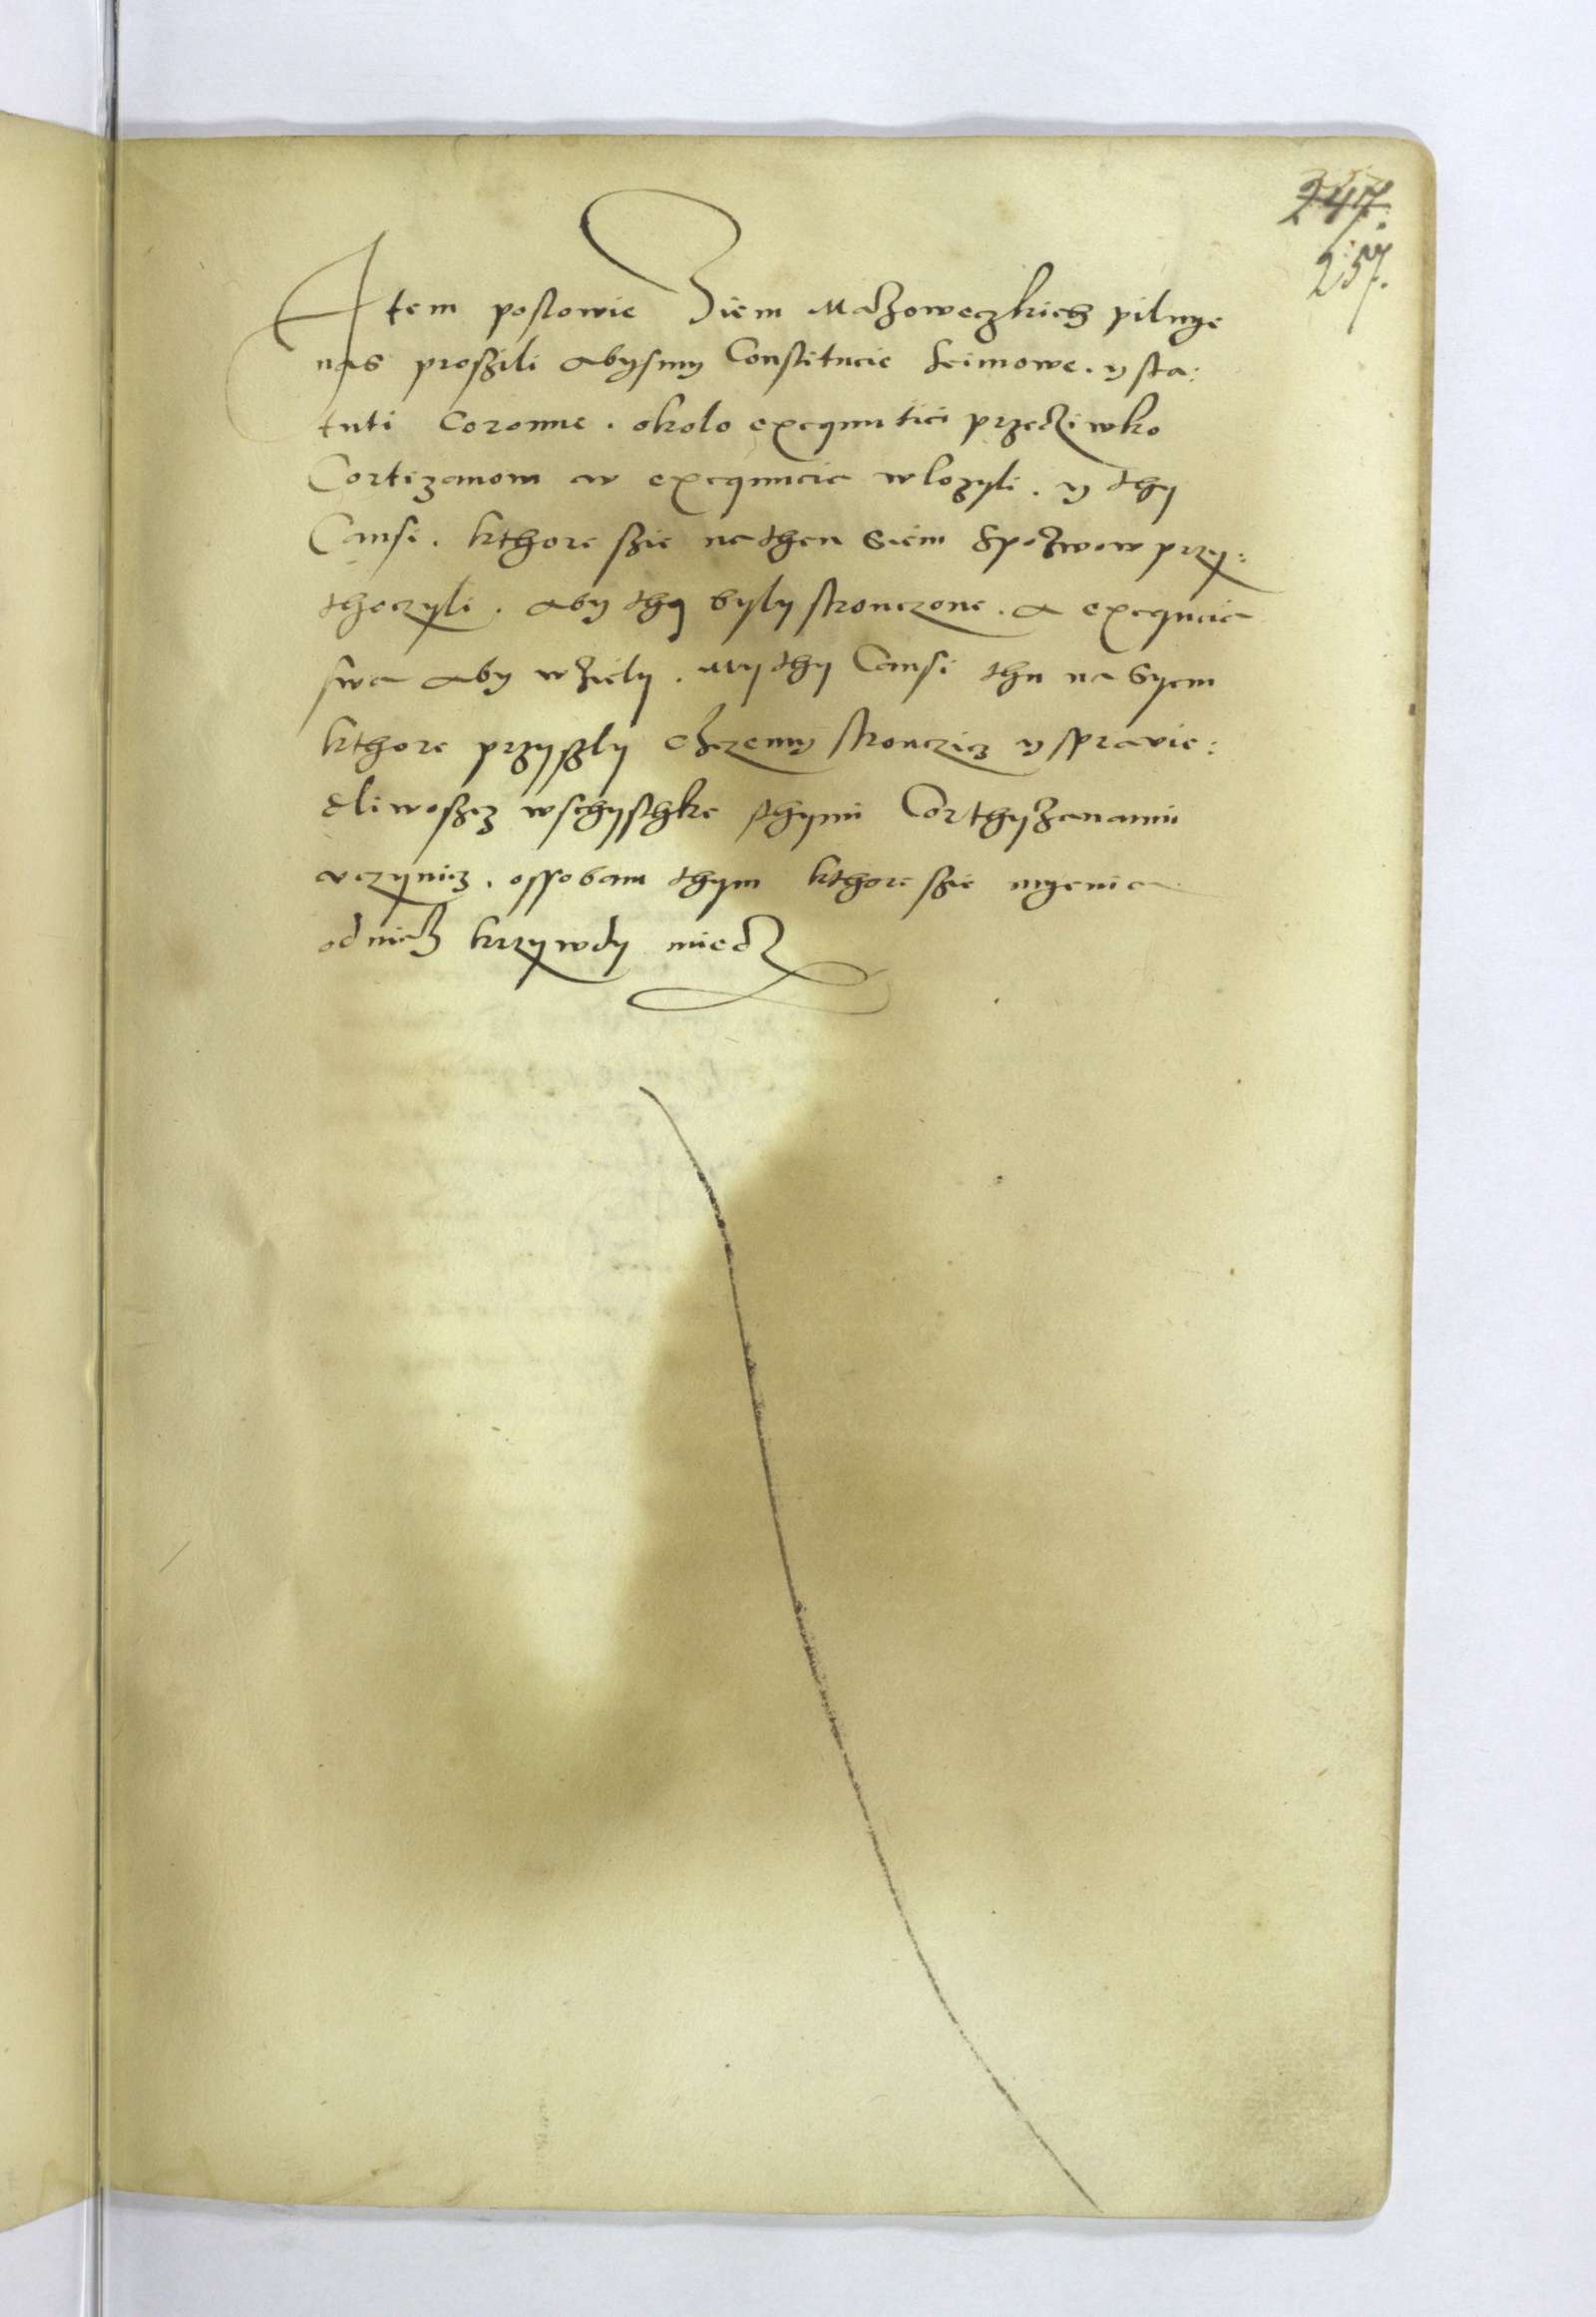 247.
257.
Item poslowie Ziem Mazoweczkich pilnye
nas proszili abysmy Constitucie Seimowe. y sta:
tuti Coronne. okolo exequutiei przecziwko
Cortezanom w exequucie wlozyli. y thy
Causi. kthore szie na then Siem spozwow przy:
thoczyli. aby thy byly skonczone. a exequcia
swa aby wziely. My thy Causi thu na Syem
kthore przyszly chczemy skonczicz y spravie:
dliwoszcz wschysthke sthymi Corthyzanami
vczynicz. ossobam thym kthore szie myenia
odnich krzywdy miecz